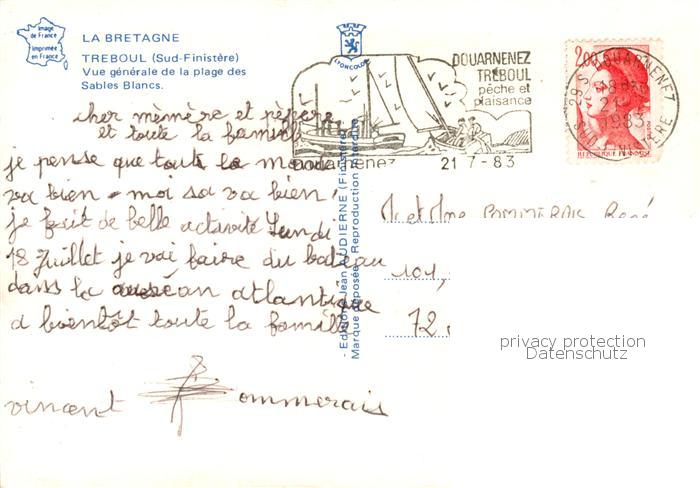 Image de France
Imprimée en France
LA BRETAGNE
TREBOUL (Sud-Finistère)
Vue générale de la plage des
Sables Blancs.
LYONCOLOR
DOUARNENEZ
TRÉBOUL
pêche et
plaisance
douarnenez 21 7-83
2,00
29 S DOUARNENEZ
18H
21-7
1983
SUD FINISTERE
REPUBLIQUE FRANCAISE
cher mèmère et pépère
et toute la famille
je pense que tout le monde
va bien - moi sa va bien,
je fait de belle activité Lundi
18 Juillet je vai faire du bateau
dans la océan atlantique
a bientôt toute la famille
vincent Pommerais
- Editions Jean AUDIERNE (Finistère)
Marque déposée - Reproduction interdite
M et Mme POMMERAIS René
101,
72.
privacy protection
Datenschutz